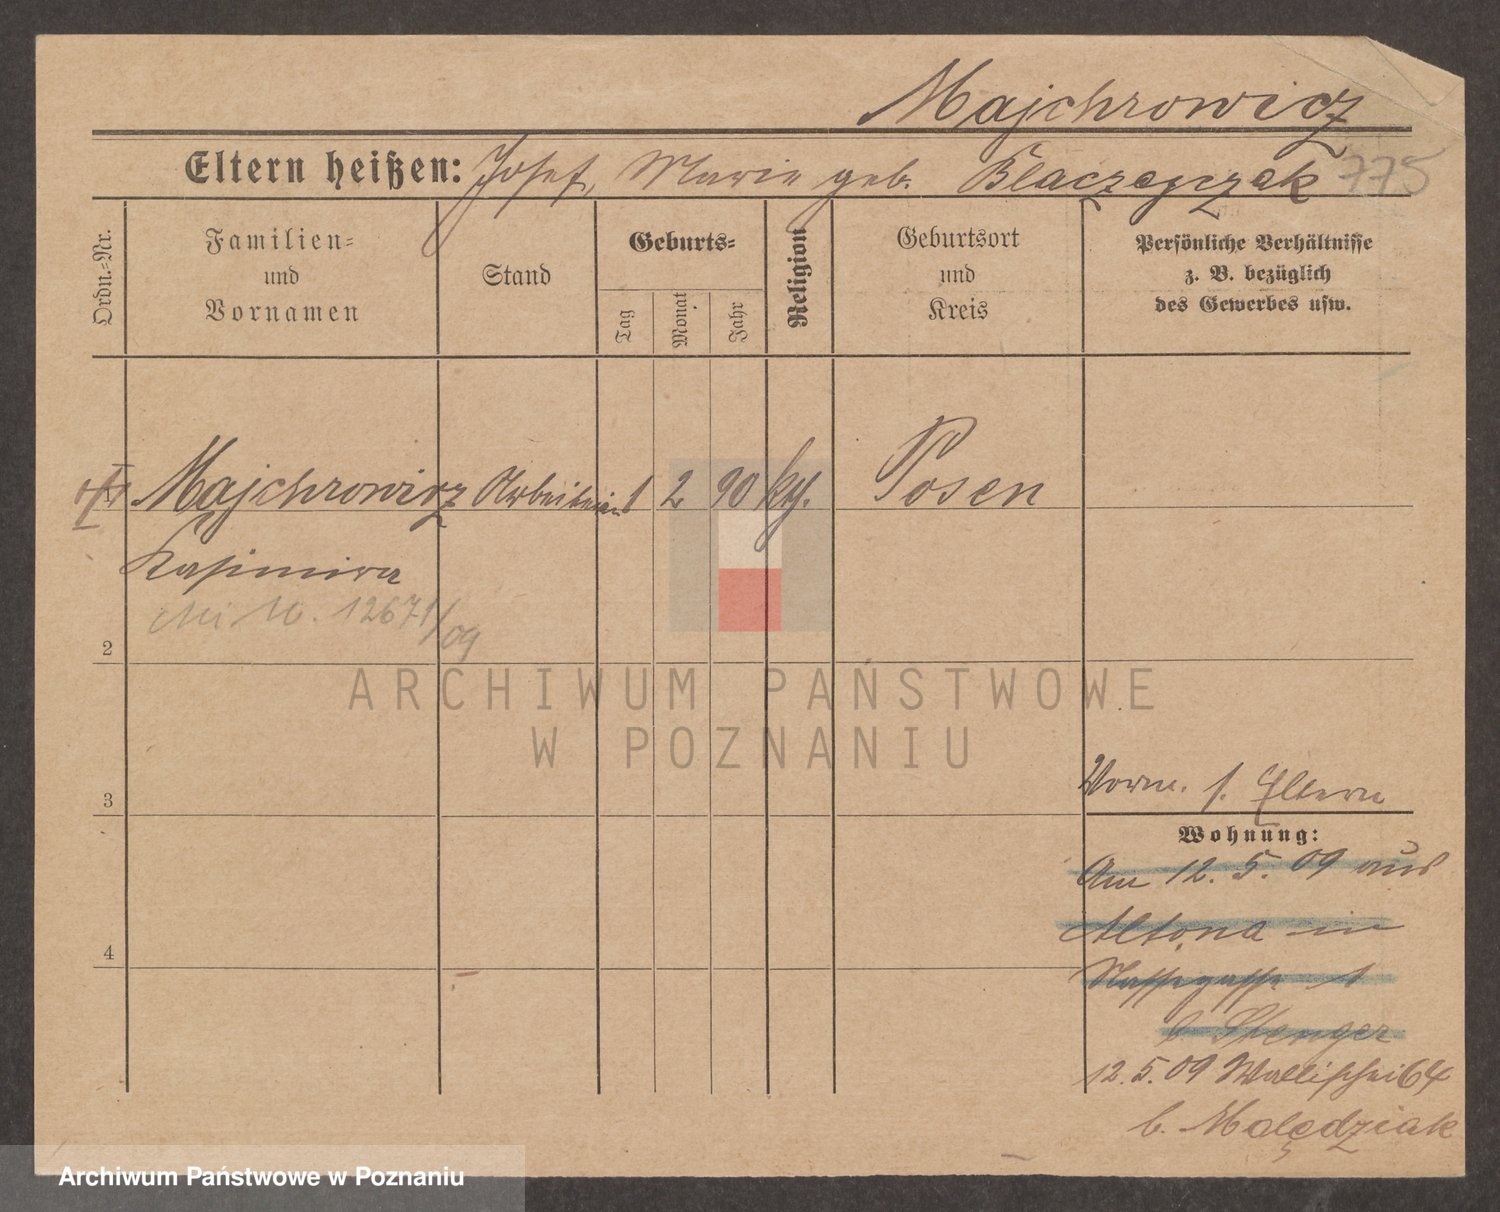 Majchrowicz
Eltern heißen: Josef, Marie geb. Blaczejczak 775
Ordn.-Nr.
Familien-
und
Vornamen
Stand
Geburts-
Tag
Monat
Jahr
Religion
Geburtsort
und
Kreis
Persönliche Verhältnisse
z. B. bezüglich
des Gewerbes usw.
Majchrowicz Arbeiterin 1 2 90 kth. Posen
Kasimira
12671/09
2
3
4
Vorm. s. Eltern
Wohnung:
Am 12. 5. 09 aus
Altona in
Nassegasse 1
b. Stenger
12. 5. 09 Wallischei 64
b. Molędziak
ARCHIWUM PAŃSTWOWE
W POZNANIU
Archiwum Państwowe w Poznaniu